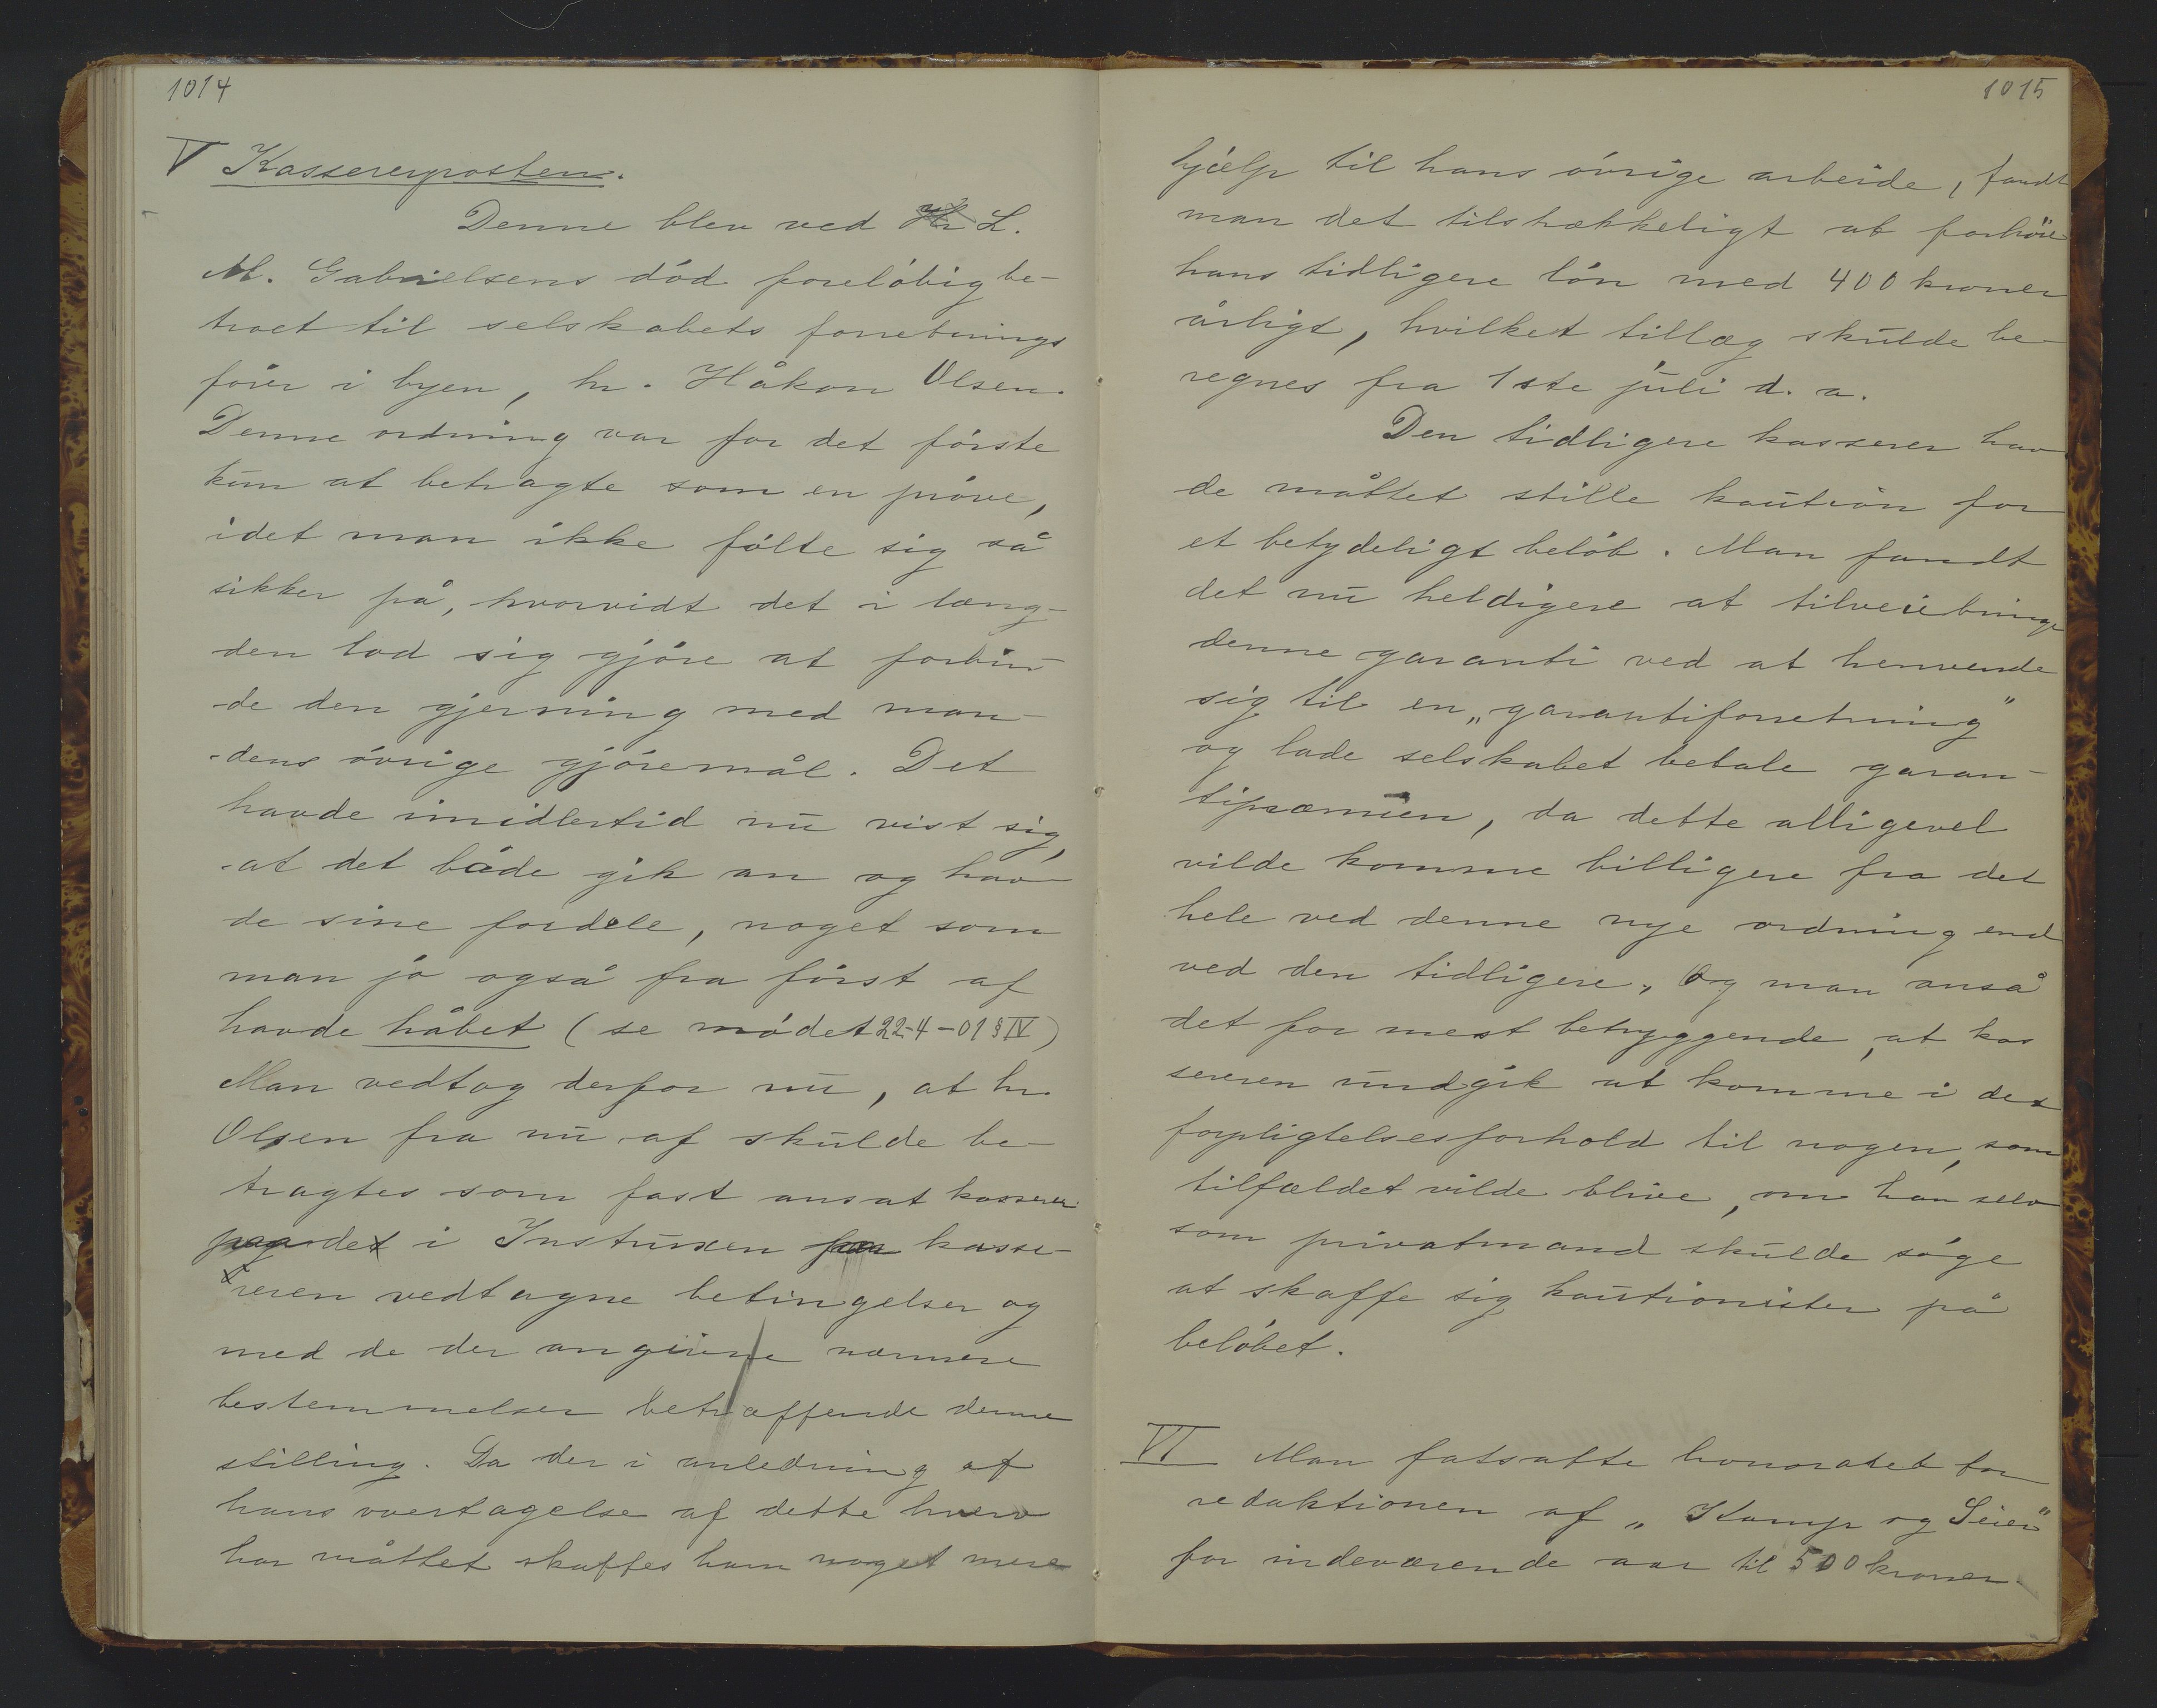 1014
V Kassererposten.
Denne blev ved Hr L.
M. Gabrielsens död foreløbig be-
troet til selskabets forretnings
förer i byen, hr. Håkon Olsen.
Denne ordning var for det förste
kun at betragte som en pröve,
idet man ikke fölte sig så
sikker på, hvorvidt det i læng-
den lod sig gjöre at forbin-
-de den gjerning med man-
-dens övrige gjöremål. Det
havde imidlertid nu vist sig,
-at det både gik an og hav-
de sine fordele, noget som
man jo også fra först af
havde håbet (se mödet 22-4-01 § IV)
Man vedtog derfor nu, at hr.
Olsen fra nu af skulde be-
tragtes som fast ansat kasserer
paa det i Instruxen for kasse-
reren vedtagne betingelser og
med de der angivne nærmere
bestemmelser betræffende denne
stilling. Da der i anledning af
hans overtagelse af dette hverv
har måttet skaffes ham noget mere
1015
hjælp til hans övrige arbeide, fandt
man det tilstrækkeligt at forhöie
hans tidligere lön med 400 kroner
årligt, hvilket tillæg skulde be-
regnes fra 1ste juli d. a.
Den tidligere kasserer hav
de måttet stille kaution for
et betydeligt belöb. Man fandt
det nu heldigere at tilveiebringe
denne garanti ved at henvende
sig til en „garantiforretning"
og lade selskabet betale garan-
tipræmien, da dette alligevel
vilde komme billigere fra det
hele ved denne nye ordning end
ved den tidligere. Og man anså
det for mest betryggende, at kas
sereren undgik at komme i det
forpligtelsesforhold til nogen, som
tilfældet vilde blive, om han selv
som privatmand skulde söge
at skaffe sig kautionister på
belöbet.
VI Man fatsatte honoraret for
redaktionen af „Kamp og Seier"
for indeværende aar til 500 kroner.